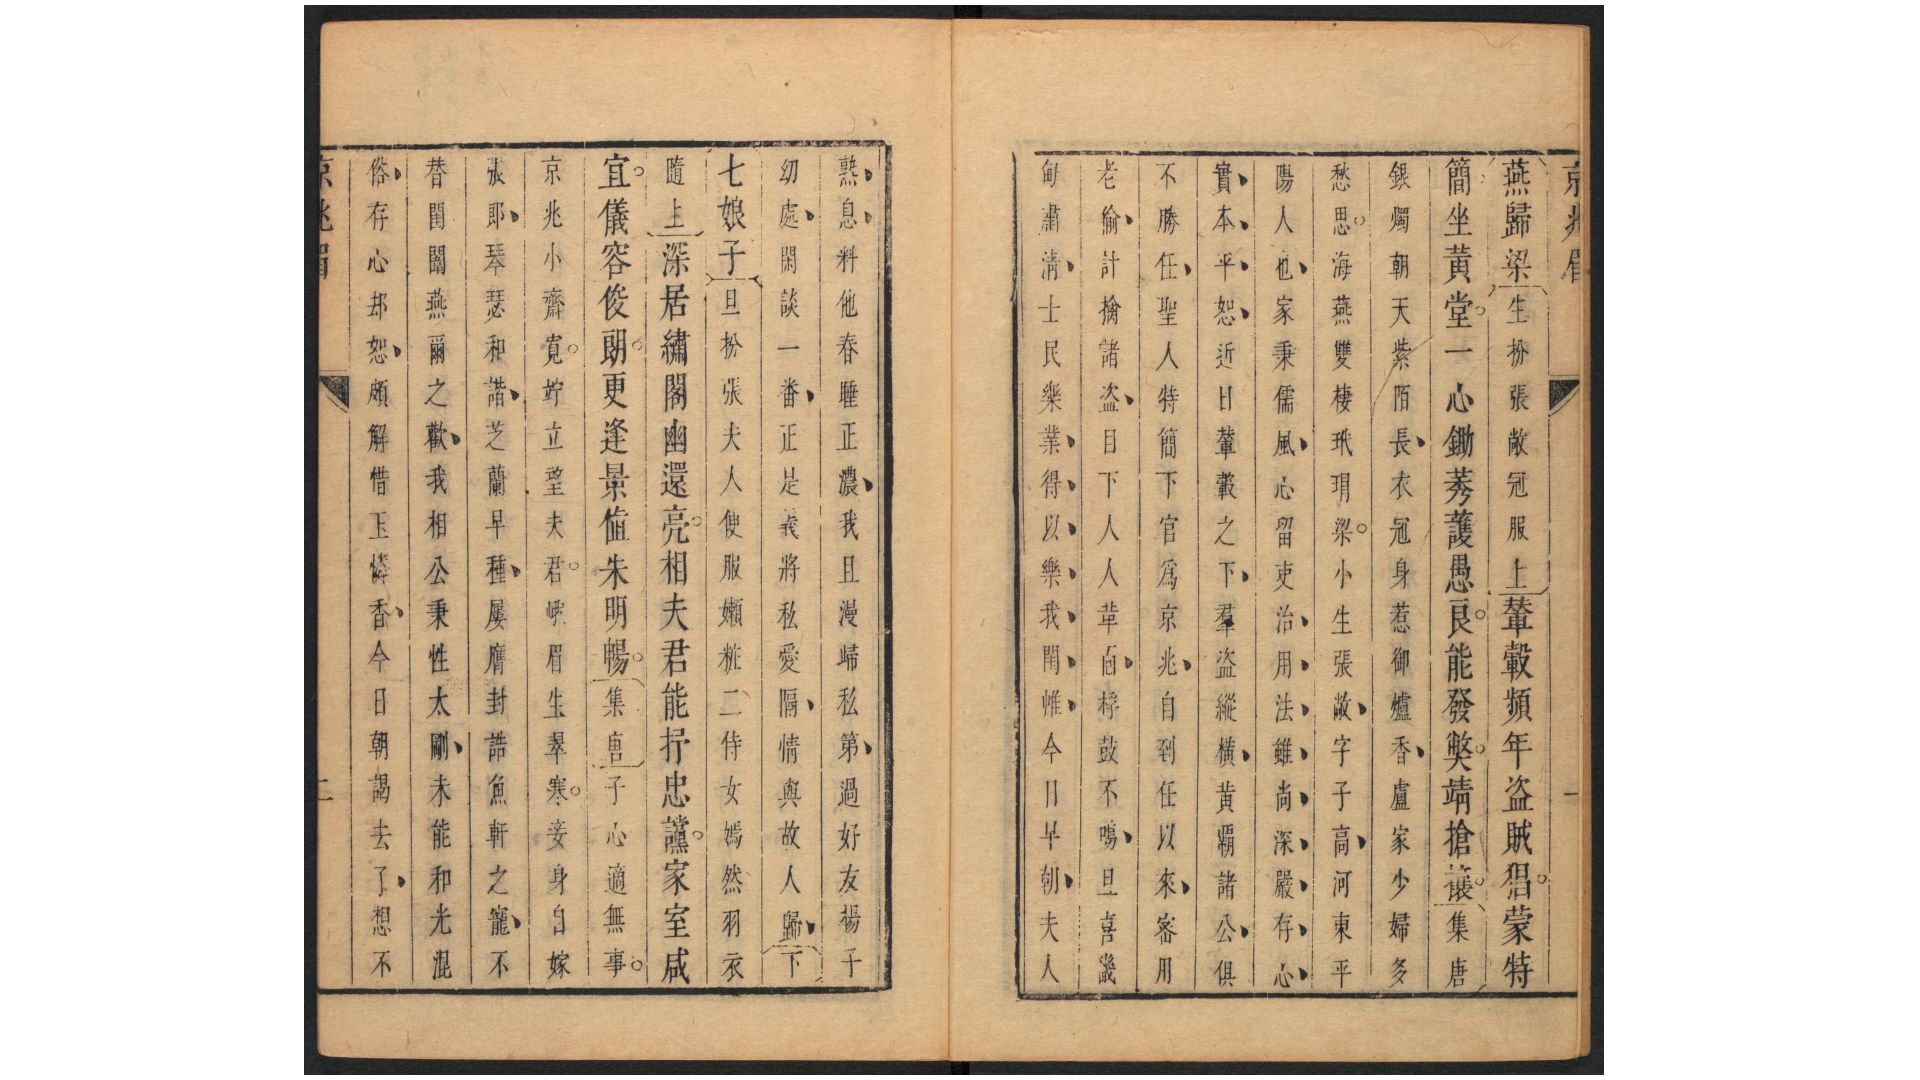 京兆眉
一
燕歸梁生扮張敞冠服上輦轂頻年盜賊猖蒙特
簡坐黃堂一心鋤莠護愚良能發奬靖搶攘集唐
銀燭朝天紫陌長衣冠身惹御爐香盧家少婦多
愁思海燕雙棲玳瑁梁小生張敞字子高河東平
陽人也家秉儒風心留吏治用法雖尚深嚴存心
實本平恕近日輦轂之下羣盜縱橫黃霸諸公俱
不勝任聖人特簡下官爲京兆自到任以來密用
老偷計擒諸盜日下人人革面桴鼓不鳴且喜畿
甸肅清士民樂業得以樂我閨帷今日早朝夫人
熟息料他春睡正濃我且漫歸私第過好友揚子
幼處閑談一番正是義將私愛隔情與故人歸下
七娘子旦扮張夫人便服嬾粧二侍女嫣然羽衣
隨上深居繡閣幽還亮相夫君能抒忠讜家室咸
宜儀容俊朗更逢景值朱明暢集唐子心適無事
京兆小齋寬竚立望夫君 眉生翠寒妾身自嫁
張郎琴瑟和諧芝蘭早種屢膺封誥魚軒之寵不
替閨闥燕爾之歡我相公秉性太剛未能和光混
俗存心却恕頗解惜玉憐香今日朝謁去了想不
京兆眉
二